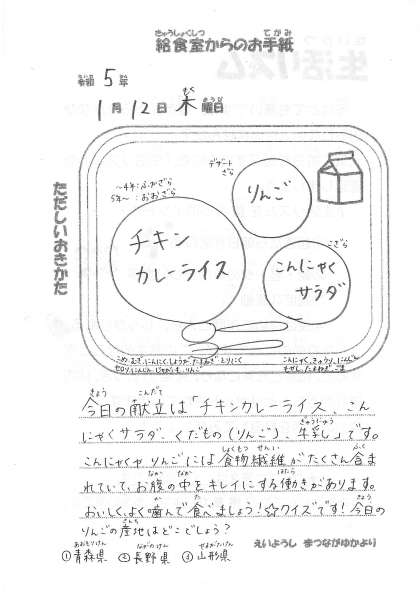 給食室からのお手紙
きゅうしょくしつ てがみ
令和 5 年
1月 12日 木曜日
ただしいおきかた
〜4年:ふかざら
5年〜:おおざら
デザートざら
りんご
チキン
カレーライス
こざら
こんにゃく
サラダ
こめ むぎ、にんにく、しょうが、たまねぎ、とりにく
セロリ、にんじん、じゃがいも、りんご
こんにゃく、きゅうり、にんじん
もやし、たまねぎ、ごま
今日の献立は「チキンカレーライス、こん
にゃくサラダ、くだもの(りんご)、牛乳」です。
こんにゃくやりんごには食物繊維がたくさん含ま
れていて、お腹の中をキレイにする働きがあります。
おいしく、よく噛んで食べましょう!☆クイズです!今日の
りんごの産地はどこでしょう?
えいようし まつながゆかより
①青森県 ②長野県 ③山形県